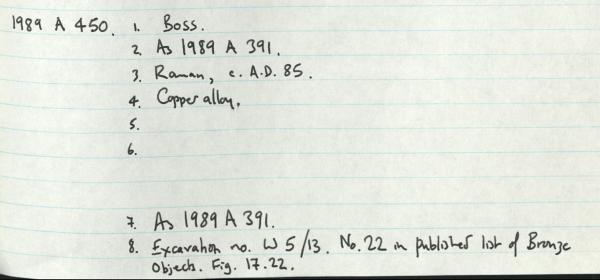 1989 A 450. 1. Boss.
2. As 1989 A 391.
3. Roman, c. A.D. 85.
4. Copper alloy.
5.
6.
7. As 1989 A 391.
8. Excavation no. W 5/13. No. 22 in published list of Bronze
Objects. Fig. 17.22.